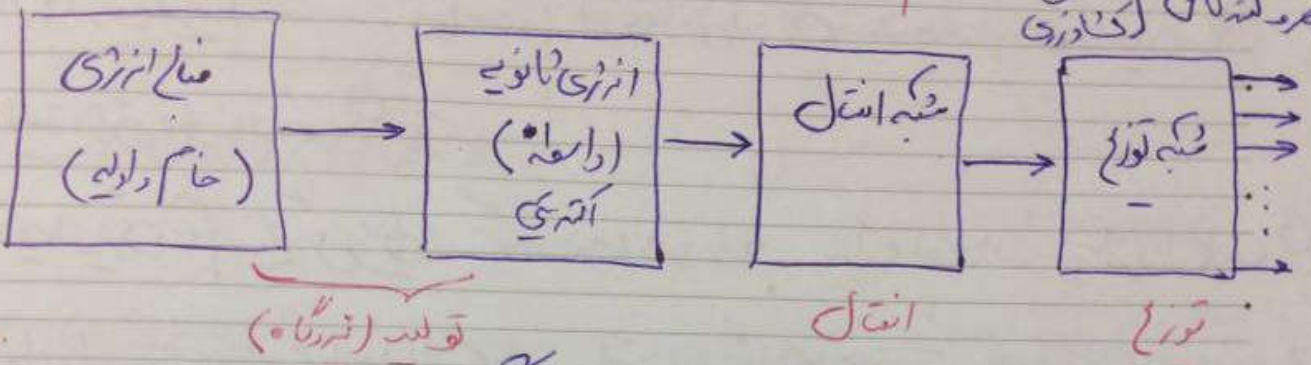 مصرف کنندگان (کشاورزی
منابع انرژی
(خام و اولیه)
انرژی ثانویه
(واسطه)
الکتریکی
شبکه انتقال
شبکه توزیع
تولید (نیروگاه)
انتقال
توزیع